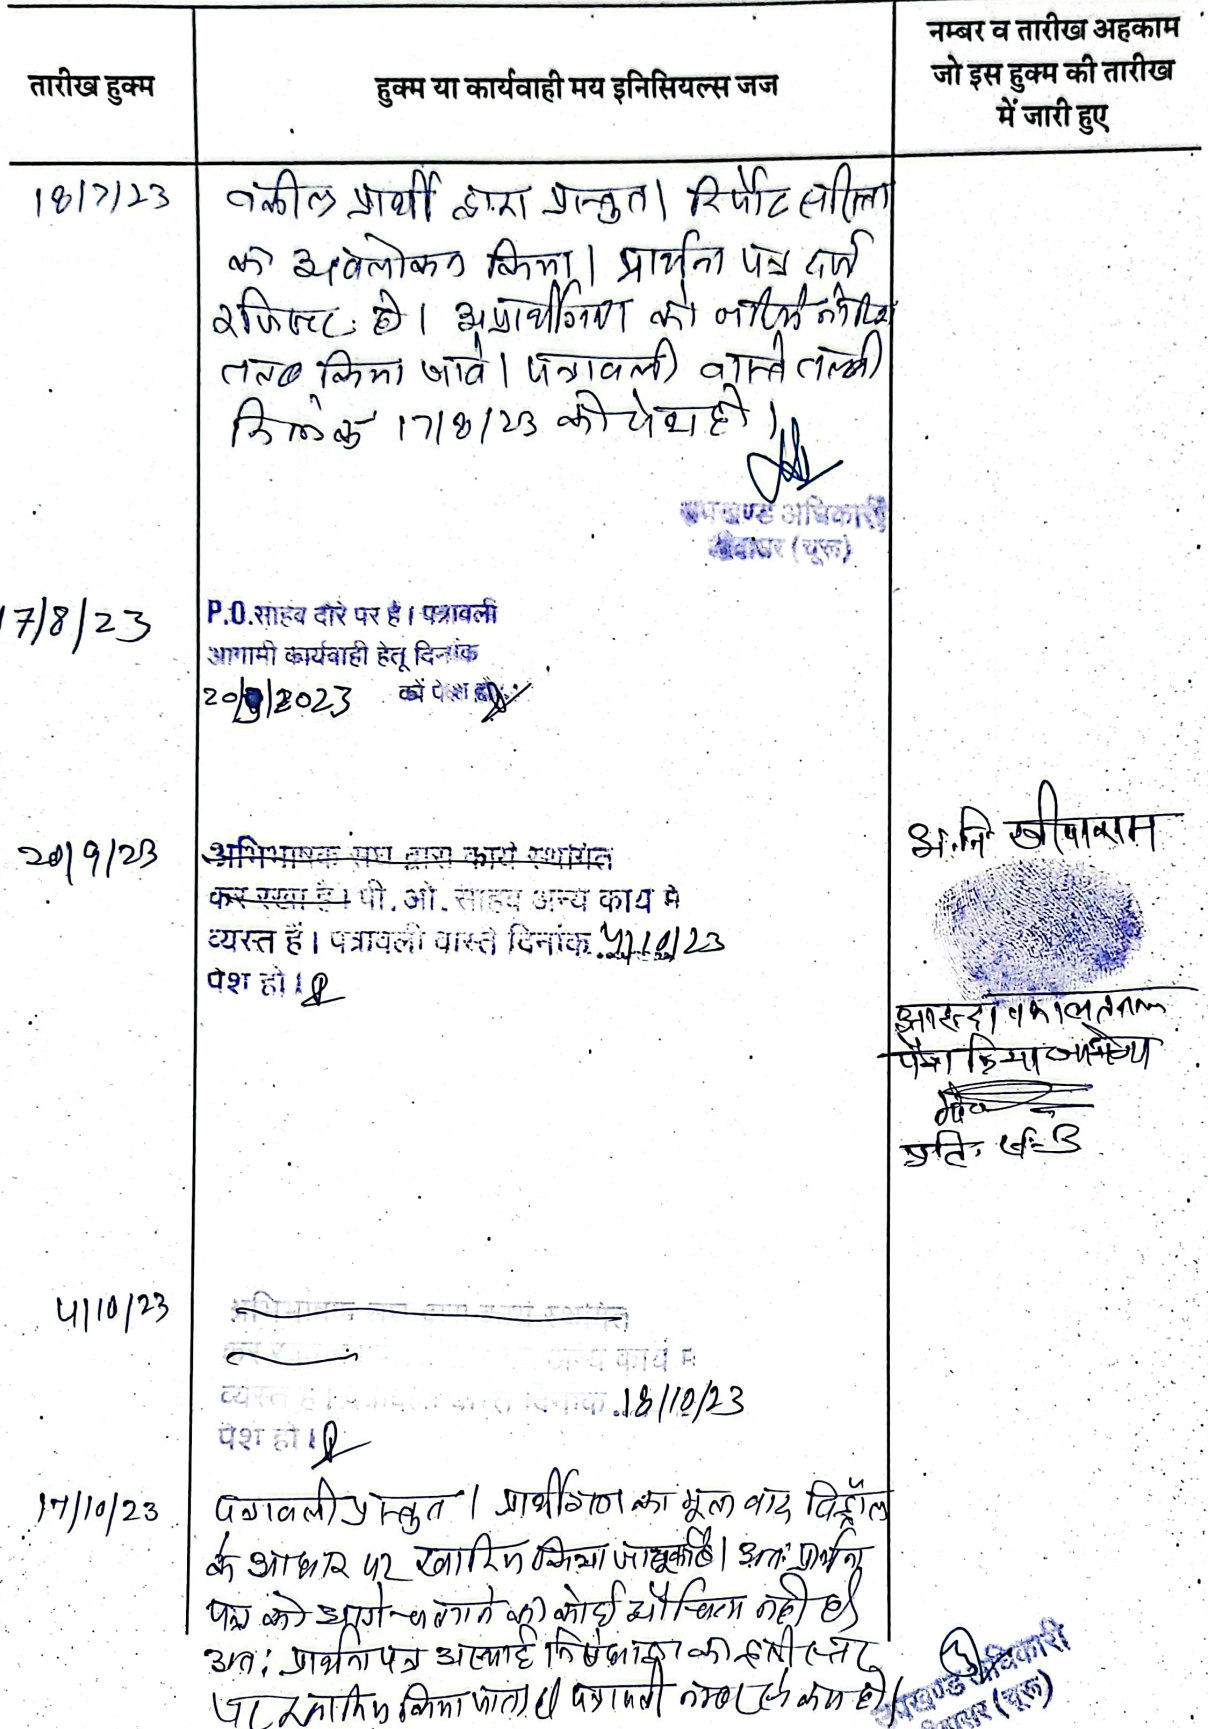 तारीख हुक्म
हुक्म या कार्यवाही मय इनिसियल्स जज
नम्बर व तारीख अहकाम
जो इस हुक्म की तारीख
में जारी हुए
18/7/23
वकील प्रार्थी द्वारा प्रस्तुत। रिपोर्ट
का अवलोकन किया। प्रार्थना पत्र दर्ज
रजिस्टर हो। अप्रार्थीगण को जरिये नोटिस
तलब किया जावे। पत्रावली वास्ते तलबी
दिनांक 17/8/23 को पेश हो।
उपखण्ड अधिकारी
(चूरू)
17/8/23
P.O. साहब दौरे पर है। पत्रावली
आगामी कार्यवाही हेतू दिनांक
20/9/2023 को पेश हो
20/9/23
अभिभाषक संघ द्वारा कार्य स्थगित
कर रखा है। पी. ओ. साहब अन्य कार्य मे
व्यस्त हैं। पत्रावली वास्ते दिनांक 4/10/23
पेश हो।
अ.नि
आईन्दा वकालतनामा
पेश किया जायेगा
4/10/23
अभिभाषक संघ द्वारा कार्य स्थगित
कर अन्य कार्य मे
व्यस्त है। पत्रावली वास्ते दिनांक 18/10/23
पेश हो।
17/10/23
पत्रावली प्रस्तुत। प्रार्थीगण का मूल वाद विड्रॉल
के आधार पर खारिज किया जा चुका है। अतः प्रार्थना
पत्र को आगे चलाने का कोई औचित्य नहीं है।
अतः प्रार्थना पत्र अस्थाई निषेधाज्ञा का इसी स्तर
पर खारिज किया जाता है। पत्रावली नम्बर से कम हो।
उपखण्ड अधिकारी
(चूरू)